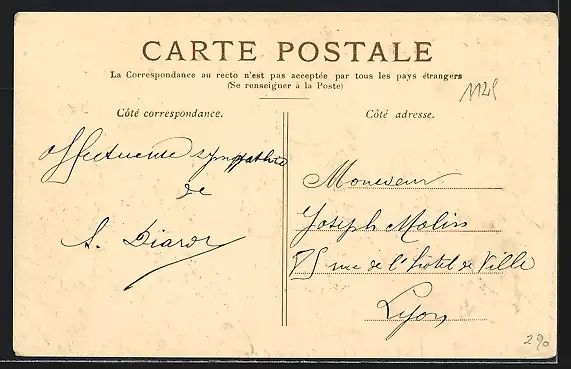 CARTE POSTALE
La Correspondance au recto n'est pas acceptée par tous les pays étrangers
(Se renseigner à la Poste)
Côté correspondance.
Côté adresse.
affectueuse sympathie
de
A. Diaror
Monsieur
Joseph Molin
75 rue de l'hôtel de Ville
Lyon
290